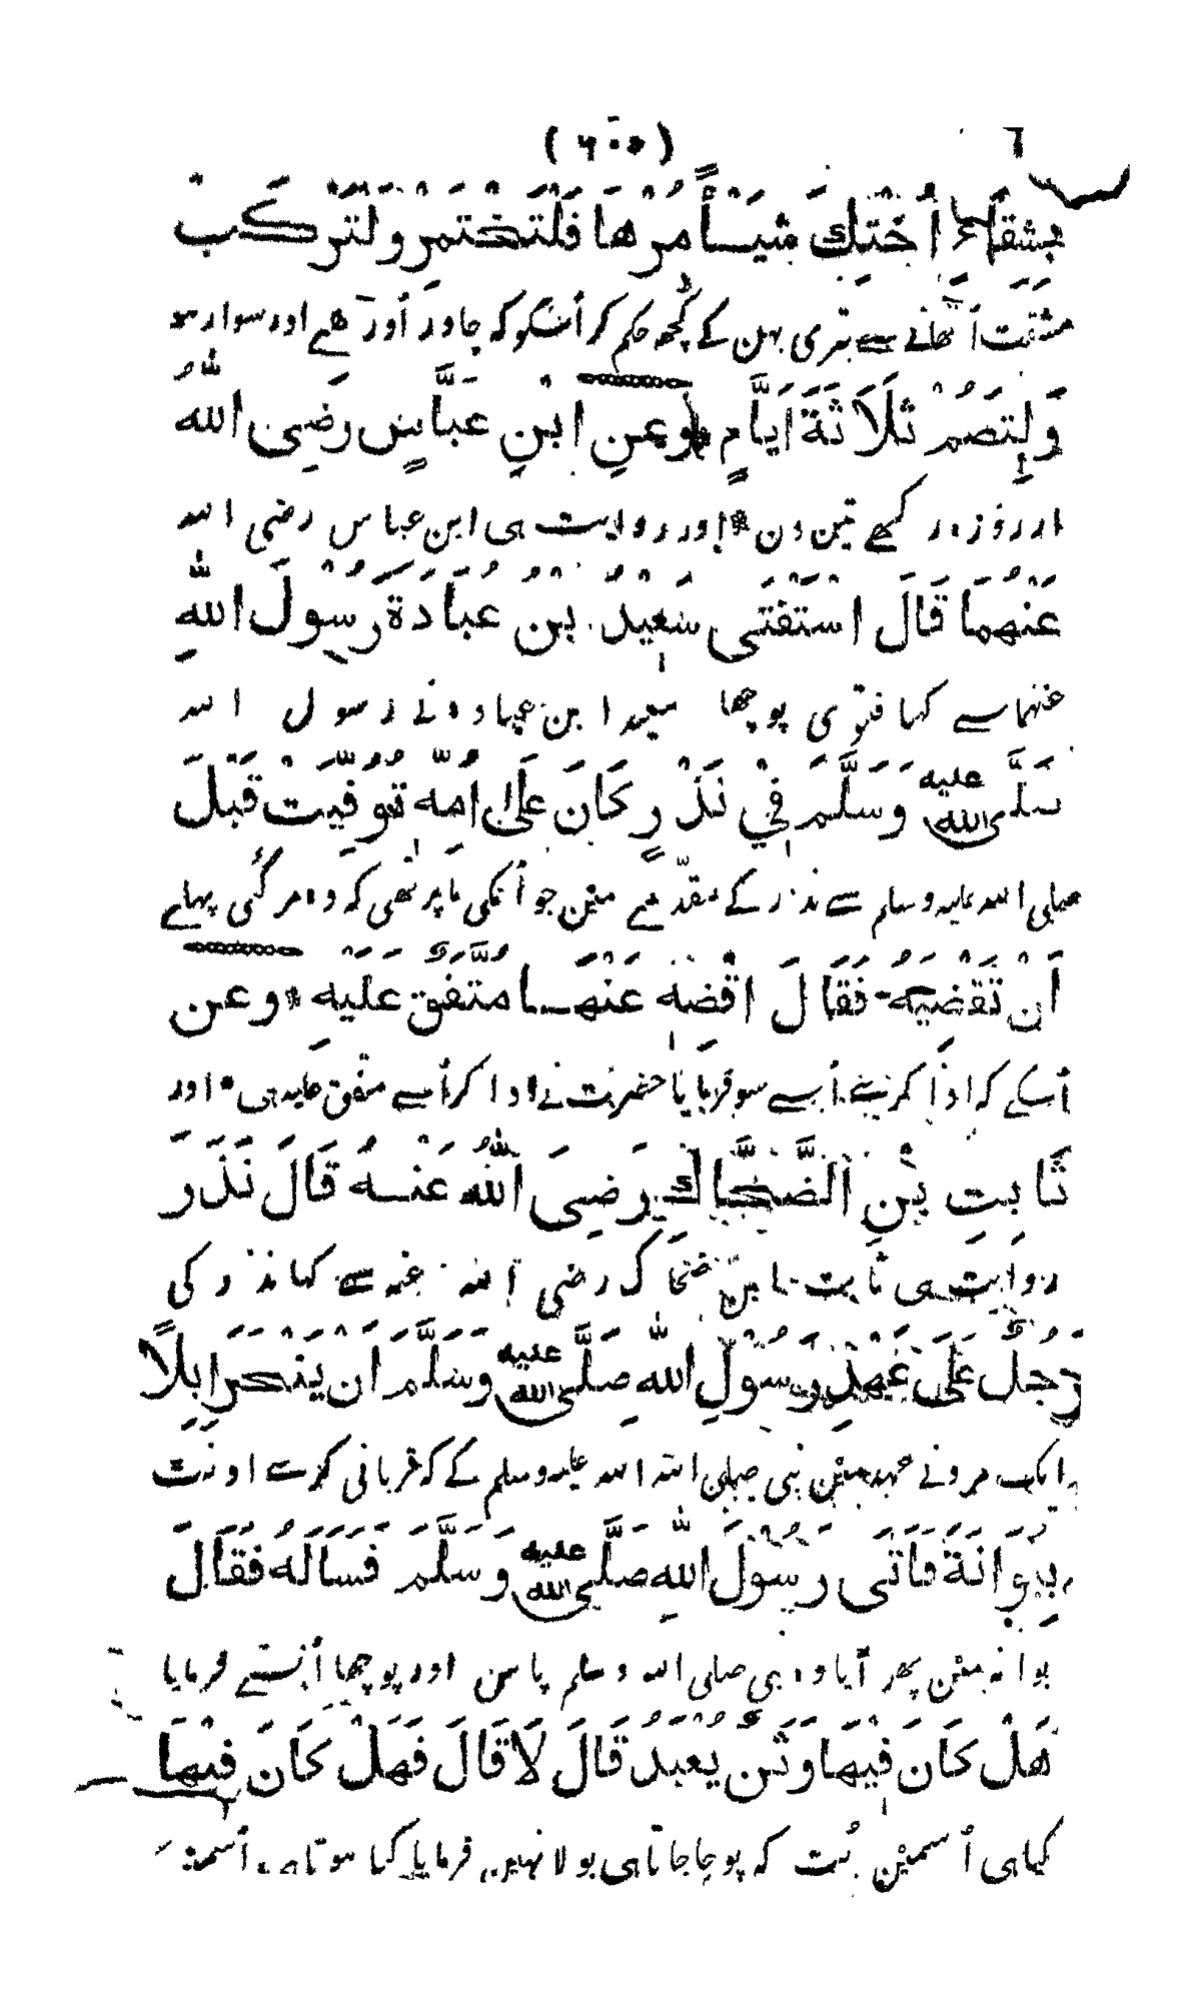 (٦٠٥)
بِشِقَاءِ أُخْتِكَ شَيْـأً مُرْهَا فَلْتَخْتَمِرْ وَلْتَرْكَبْ
مشقت اٹھانے سے تیری بہن کے کچھ حکم کر اُسکو کہ چادر اُوڑھے اور سوار ہو
وَلِتَصُمْ ثَلَاثَةَ اَيَّامٍ * وَعَنِ ابْنِ عَبَّاسٍ رَضِیَ اللّٰهُ
اور روزہ رکھے تین دن * اور روایت ہی ابن عباس رضی اللہ
عَنْهُمَا قَالَ اسْتَفْتَى سَعِيْدُ بْنُ عُبَادَةَ رَسُوْلَ اللّٰهِ
عنہما سے کہا فتوی پوچھا سعید ابن عبادہ نے رسول اللہ
صَلَّى اللّٰه عليه وَسَلَّمَ فِيْ نَذْرٍ كَانَ عَلَى اُمِّهٖ تُوُفِّيَتْ قَبْلَ
صلی اللہ علیہ وسلم سے نذر کے مقدمے مین جو اُنکی ما پر تھی کہ وہ مر گئی پہلے
اَنْ تَقْضِيَهُ فَقَالَ اقْضِهٖ عَنْهَـا مُتَّفَقٌ عَلَيْهِ * وعن
اُسکے کہ ادا کرے اُسے سو فرمایا حضرت نے ادا کر اُسے متفق علیہ ہی * اور
ثَابِتِ بْنِ الضَّحَّاكِ رَضِیَ اللّٰهُ عَنْـهُ قَالَ نَذَرَ
روایت ہی ثابت بن ضحاک رضی اللہ عنہ سے کہا نذر کی
رَجُلٌ عَلَى عَهْدِ رَسُوْلِ اللّٰهِ صَلَّى اللّٰه عليه وَسَلَّمَ اَنْ يَنْحَرَ اِبِلًا
ایک مرد نے عہد مین نبی صلی اللہ علیہ وسلم کے کہ قربانی کرے اونٹ
بِبُوَانَةَ فَاَتَى رَسُوْلَ اللّٰهِ صَلَّى اللّٰه عليه وَسَلَّمَ فَسَاَلَهُ فَقَالَ
بوانہ مین پھر آیا وہ نبی صلی اللہ وسلم پاس اور پوچھا اُنسے فرمایا
هَلْ كَانَ فِيْهَا وَثَنٌ يُعْبَدُ قَالَ لَا قَالَ فَهَلْ كَانَ فِيْهَا
کیا ہی اُسمین بُت کہ پوجا جاتا ہی بولا نہین فرمایا کیا ہوتا ہی اُسمین